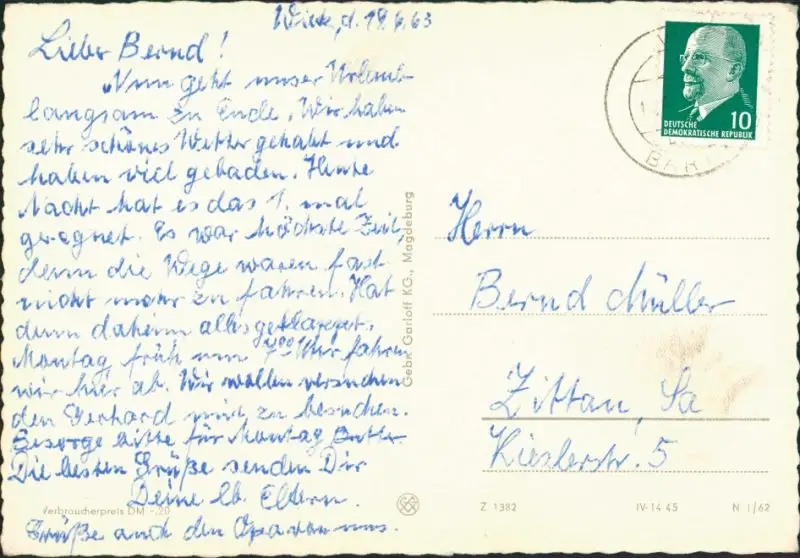 Wiek, d. 19.6.63
Lieber Bernd!
Nun geht unser Urlaub
langsam zu Ende. Wir haben
sehr schönes Wetter gehabt und
haben viel gebadet. Heute
Nacht hat es das 1. mal
geregnet. Es war höchste Zeit,
denn die Wege waren fast
nicht mehr zu fahren. Hat
denn daheim alles geklappt.
Montag früh um 7⁰⁰ Uhr fahren
wir hier ab. Wir wollen versuchen
den Gerhard mit zu besuchen.
Besorge bitte für Montag Butter.
Die besten Grüße senden Dir
Deine lb. Eltern.
Grüße auch den Opa von uns.
Verbraucherpreis DM -,20
Gebr. Garloff KG., Magdeburg
DEUTSCHE
DEMOKRATISCHE REPUBLIK
10
BART
Herrn
Bernd Müller
Zittau, Sa
Kieslerstr. 5
Z 1382
IV-14-45
N 1/62